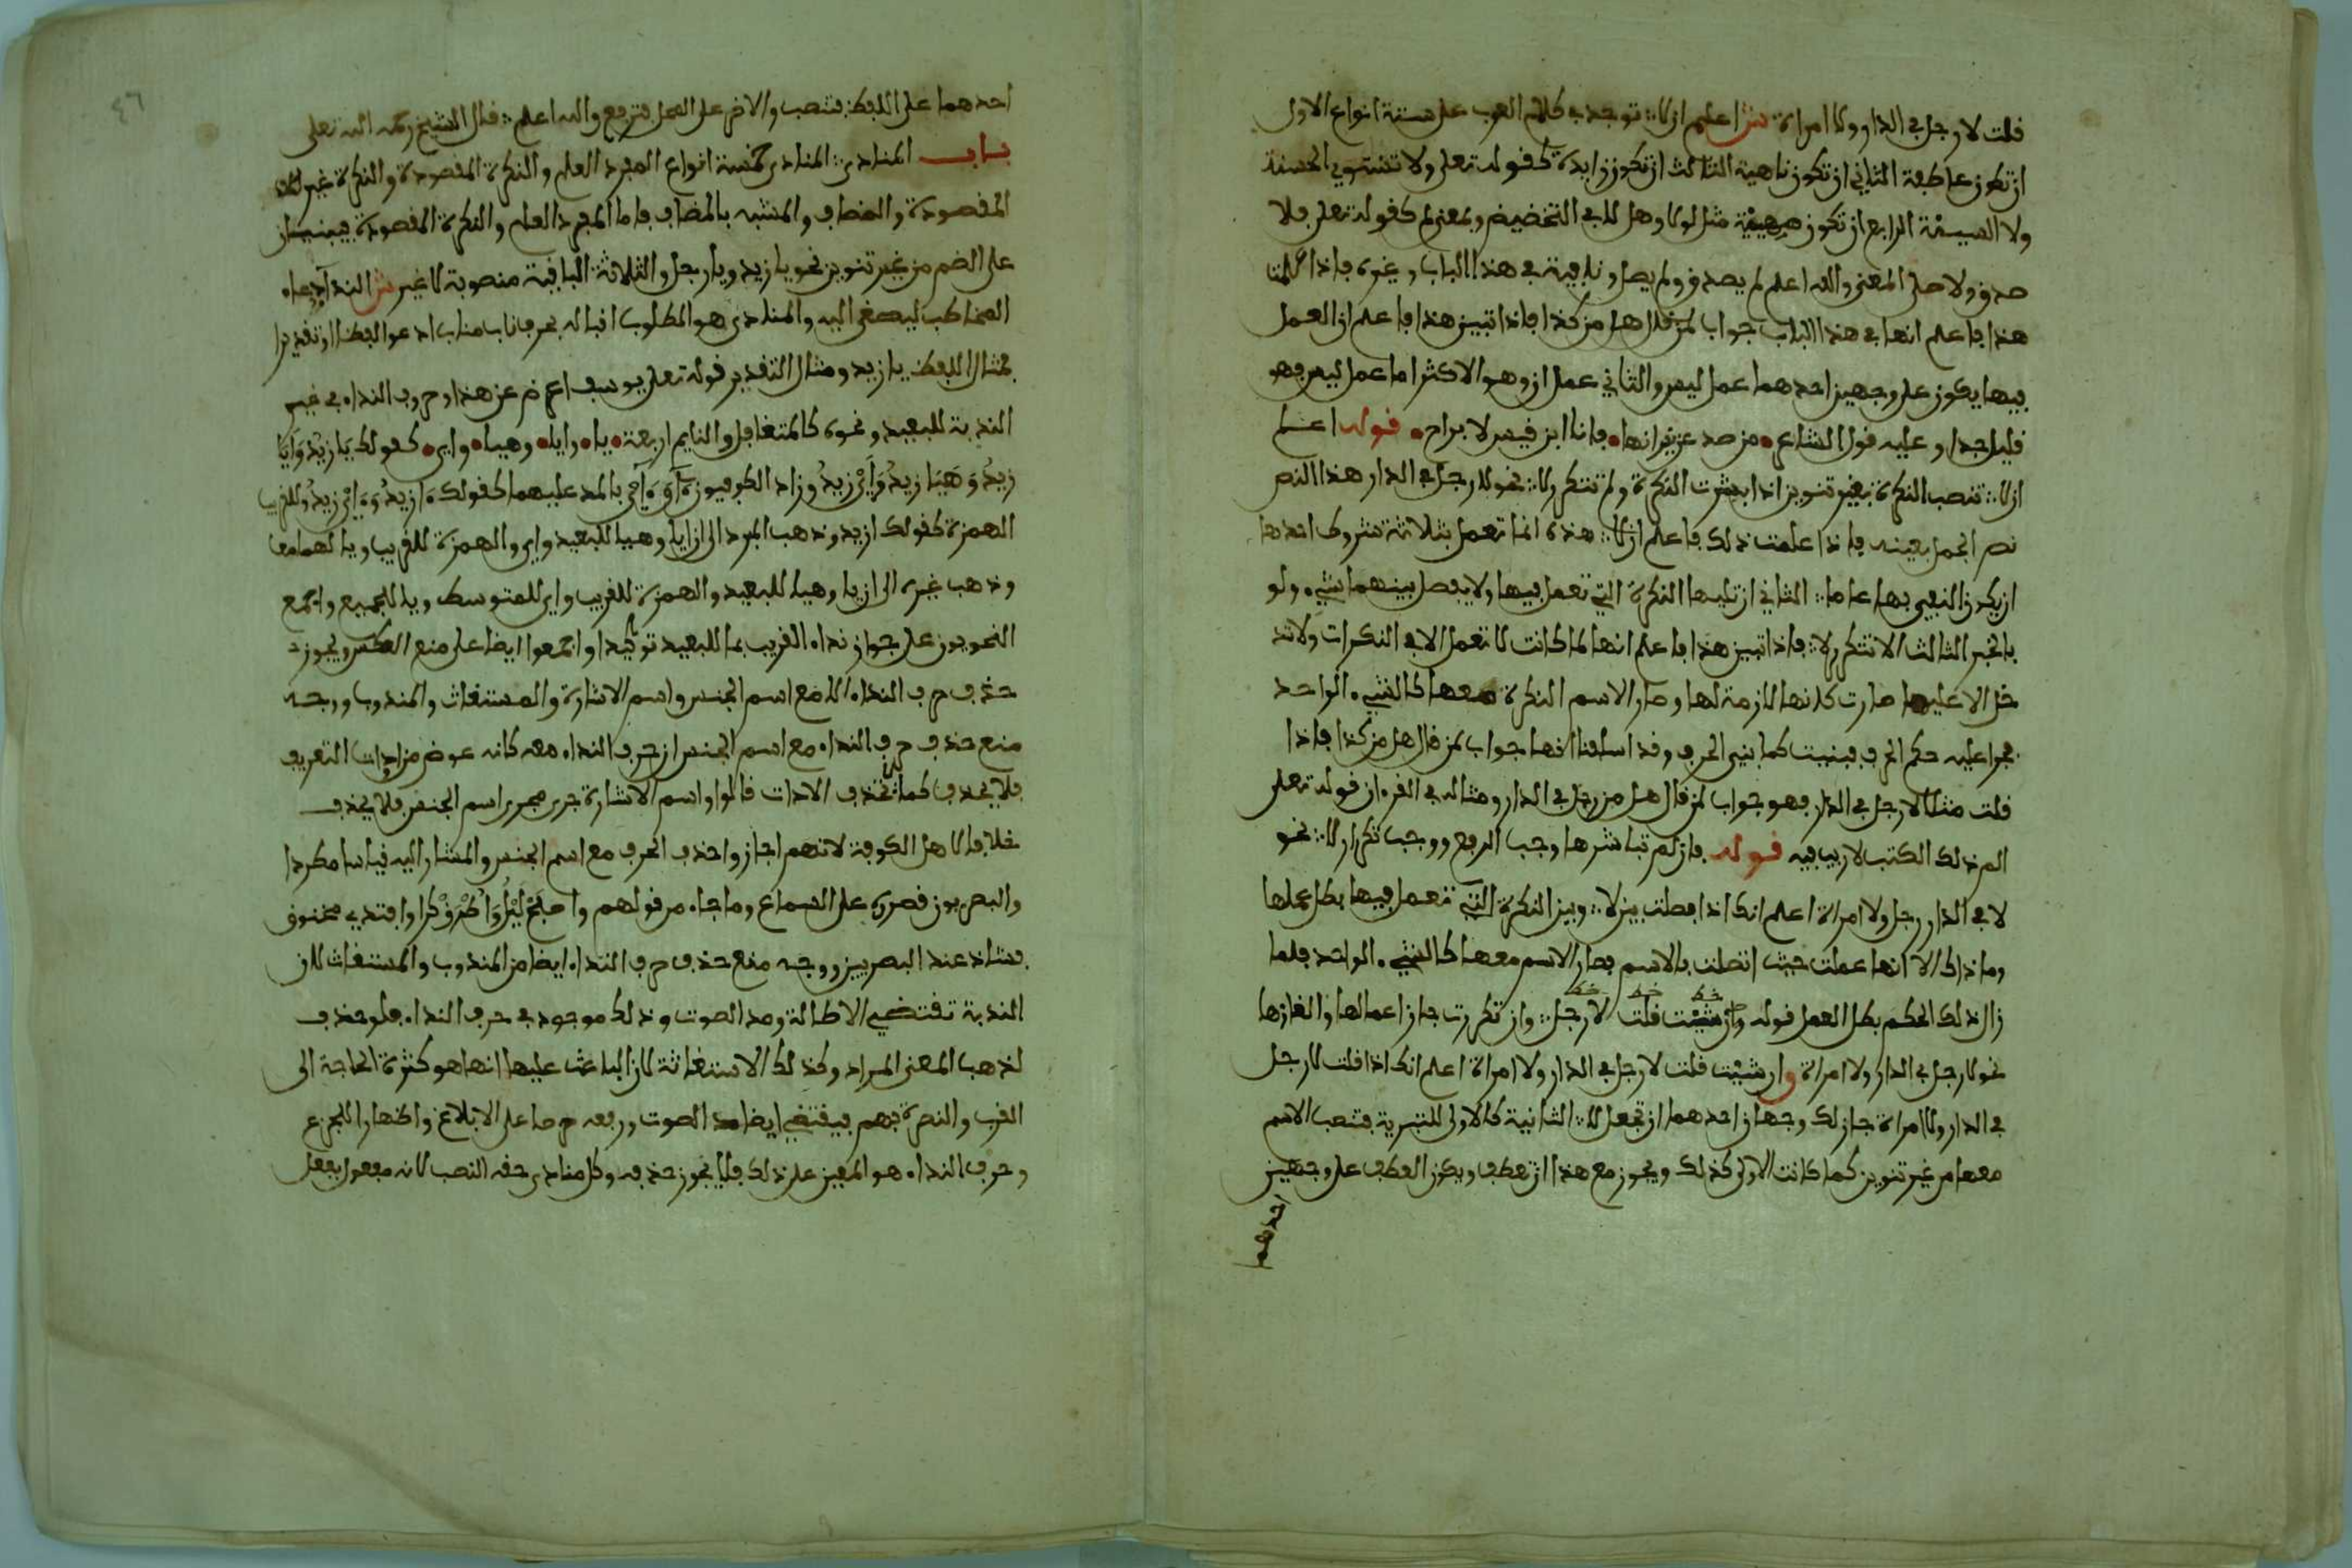 قلت لا رجل في الدار ولا امراة ش اعلم ان لا توجد في كلام العرب على ستة انواع الاول
ان تكون عاطفة الثاني ان تكون ناهية الثالث ان تكون زايدة كقوله تعلى ولا تستوي الحسنة
ولا السيئة الرابع ان تكون مثل لولا وهلا في التخضيض وبمعنى لم كقوله تعلى فلا
صدق ولا صلى المعنى والله اعلم لم يصدق ولم يصل ونافية في هذا الباب وغيره فاذا
هذا فاعلم انها في هذا الباب جواب لمن قال هل من كذا فاذا تبين هذا فاعلم ان العمل
فيها يكون على وجهين احدهما عمل ليس والثاني عمل ان وهو الاكثر اما عمل ليس فهو
قليل جدا وعليه قول الشاعر من صد عن نيرانها فانا ابن قيس لا براح قوله اعلم
ان لا تنصب النكرة بغير تنوين اذا باشرت النكرة ولم تتكرر لا نحو لا رجل في الدار هذا النص
نص الجمل بعينه فاذا علمت ذلك فاعلم ان لا هذه انما تعمل بثلاثة شروط احدها
ان يكون النفي بها عاما الثاني ان تليها النكرة التي تعمل فيها ولا يفصل بينهما بشيء ولو
بالخبر الثالث الا تتكرر لا فاذا تبين هذا فاعلم انها لما كانت لا تعمل الا في النكرات ولا تد
خل الا عليها صارت كانها لازمة لها وصار الاسم النكرة معها كالشيء الواحد
فجرا عليه حكم الحرف فبنيت كما بني الحرف وقد اسلفنا انها جواب لمن قال هل من كذا فاذا
قلت مثلا لا رجل في الدار فهو جواب لمن قال هل من رجل في الدار ومثاله في القرءان قوله تعلى
الم ذلك الكتب لا ريب فيه قوله فان لم تباشرها وجب الرفع ووجب تكرار لا نحو
لا في الدار رجل ولا امراة اعلم انك اذا فصلت بين لا وبين النكرة التي تعمل فيها بطل عملها
وما ذاك الا انها عملت حيث اتصلت بالاسم فصار الاسم معها كالشيء الواحد فلما
زال ذلك الحكم بطل العمل قوله وان شئت قلت لا رجل وان تكررت جاز اعمالها والغاؤها
نحو لا رجل في الدار ولا امراة وان شئت قلت لا رجل في الدار ولا امراة اعلم انك اذا قلت لا رجل
في الدار ولا امراة جاز لك وجهان احدهما ان تجعل لا الثانية كالاولى للتبرية فتنصب الاسم
معها من غير تنوين كما كانت الاولى كذلك ويجوز مع هذا ان تعطف ويكون العطف على وجهين
احدهما
٤٦
احدهما على اللفظ فتنصب والاخر على المحل فترفع والله اعلم قال الشيخ رحمه الله تعلى
باب المنادى المنادى خمسة انواع المفرد العلم والنكرة المقصودة والنكرة غير
المقصودة والمضاف والمشبه بالمضاف فاما المفرد العلم والنكرة المقصودة فيبنيان
على الضم من غير تنوين نحو يا زيد ويا رجل والثلاثة الباقية منصوبة لا غير ش النداء دعاء
المخاطب ليصغي اليه والمنادى هو المطلوب اقباله بحرف ناب مناب ادعو لفظا او تقديرا
فمثال اللفظ يا زيد ومثال التقدير قوله تعلى يوسف اعرض عن هذا وحروف النداء في غير
الندبة للبعيد ونحوه كالمتغافل والنايم اربعة يا وايا وهيا واي كقولك يا زيد وايا
زيد وهيا زيد واي زيد وزاد الكوفيون ءا وءاي بالمد عليهما كقولك ءا زيد وءاي زيد وللقريب
الهمزة كقولك ازيد وذهب المبرد الى ان ايا وهيا للبعيد واي والهمزة للقريب ويا لهما معا
وذهب غيره الى ان يا وهيا للبعيد والهمزة للقريب واي للمتوسط ويا للجميع واجمع
النحويون على جواز نداء القريب بما للبعيد توكيدا واجمعوا ايضا على منع العكس ويجوز
حذف حرف النداء الا مع اسم الجنس واسم الاشارة والمستغاث والمندوب ووجه
منع حذف حرف النداء مع اسم الجنس ان حرف النداء معه كانه عوض من ادات التعريف
فلا يحذف كما لا تحذف الادات قالوا واسم الاشارة جرى مجرى اسم الجنس فلا يحذف
خلافا لاهل الكوفة لانهم اجازوا حذف الحرف مع اسم الجنس والمشار اليه قياسا مطردا
والبصريون قصروه على السماع وما جاء من قولهم واصبح ليل واطرق كرا وافتدي مخنوق
فشاذ عند البصريين ووجه منع حذف حرف النداء ايضا من المندوب والمستغاث لان
الندبة تقتضي الاطالة ومد الصوت وذلك موجود في حرف النداء فلو حذف
لذهب المعنى المراد وكذلك الاستغاثة لان الباعث عليها انما هو كثرة الحاجة الى
الغوث والنصرة بهم فيقتضي ايضا مد الصوت ورفعه حرصا على الابلاغ واظهار الجزع
وحرف النداء هو المعين على ذلك فلا يجوز حذفه وكل منادى حقه النصب لانه مفعول بفعل